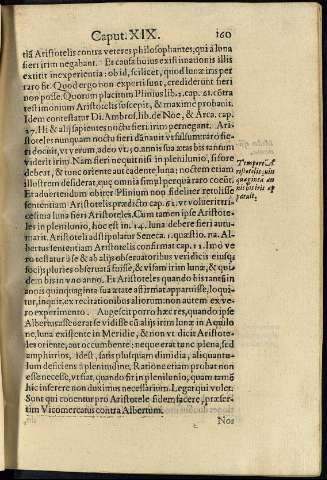 Caput. XIX. 160
tiã Aristotelis contra veteres philosophantes, qui à luna
fieri irim negabant. Et causa huius existimationis illis
extitit inexperientia: ob id, scilicet, quod lunæ iris per
raro fit. Quod ergo non experti sunt, crediderunt fieri
non posse. Quorum placitum Plinius lib. 2. cap. 61. contra
testimonium Aristotelis suscepit, & maxime probauit.
Idem contestatur Di. Ambros. lib. de Noe, & Arca. cap.
27. Hi & alij sapientes noctu fieri irim pernegant. Ari-
stoteles nunquam noctu fieri dãnauit vt falsum: raro fie-
ri docuit, vt verum, adeo vt 50. annis sua ætas bis tantum
viderit irim. Nam fieri nequit nisi in plenilunio, si fore
debeat, & tunc oriente aut cadente luna: noctem etiam
illustrem desiderat, quę omnia simul perquàm raro coeũt.
Et aduertendum obiter Plinium non fideliter retulisse
sententiam Aristotelis prædicto cap. 61. vt voluerit tri-
cesima luna fieri Aristoteles. Cum tamen ipse Aristote-
les in plenilunio, hoc est in 14. luna debere fieri autu-
marit. Aristoteli adstipulatur Seneca. 1. quæstio. na. Al-
bertus sententiam Aristotelis confirmat cap. 11. Imo ve
ro testatur à se & ab alijs obseruatoribus veridicis eiusq;
socijs pluries obseruatã fuisse, & visam irim lunæ, & qui-
dem bis in vno anno. Et Aristoteles quando bis tantũ in
annos quinquaginta sua ætate affirmat apparuisse, loqui-
tur, inquit, ex recitationibus aliorum: non autem ex ve-
ro experimento. Augescit porro hæc res, quando ipse
Albertus asseuerat se vidisse cũ alijs irim lunæ in Aquilo
ne, luna existente in Meridie, & non vt dicit Aristote-
les oriente, aut occumbente: neque erat tunc plena, sed
amphicirtos, Idest, satis plusquam dimidia, aliquantu-
lum deficiens à plenitudine. Ratione etiam probat non
esse necesse, vt fiat, quando sit in plenilunio, quam tamẽ
hic inserere non duximus necessarium. Legat qui volet.
Sunt qui conentur pro Aristotele fidem facere, præser-
tim Vicomercatus contra Albertum.
Nos
Tempore A
ristotelis, quin
quaginta an
nis bis iris ap
paruit.